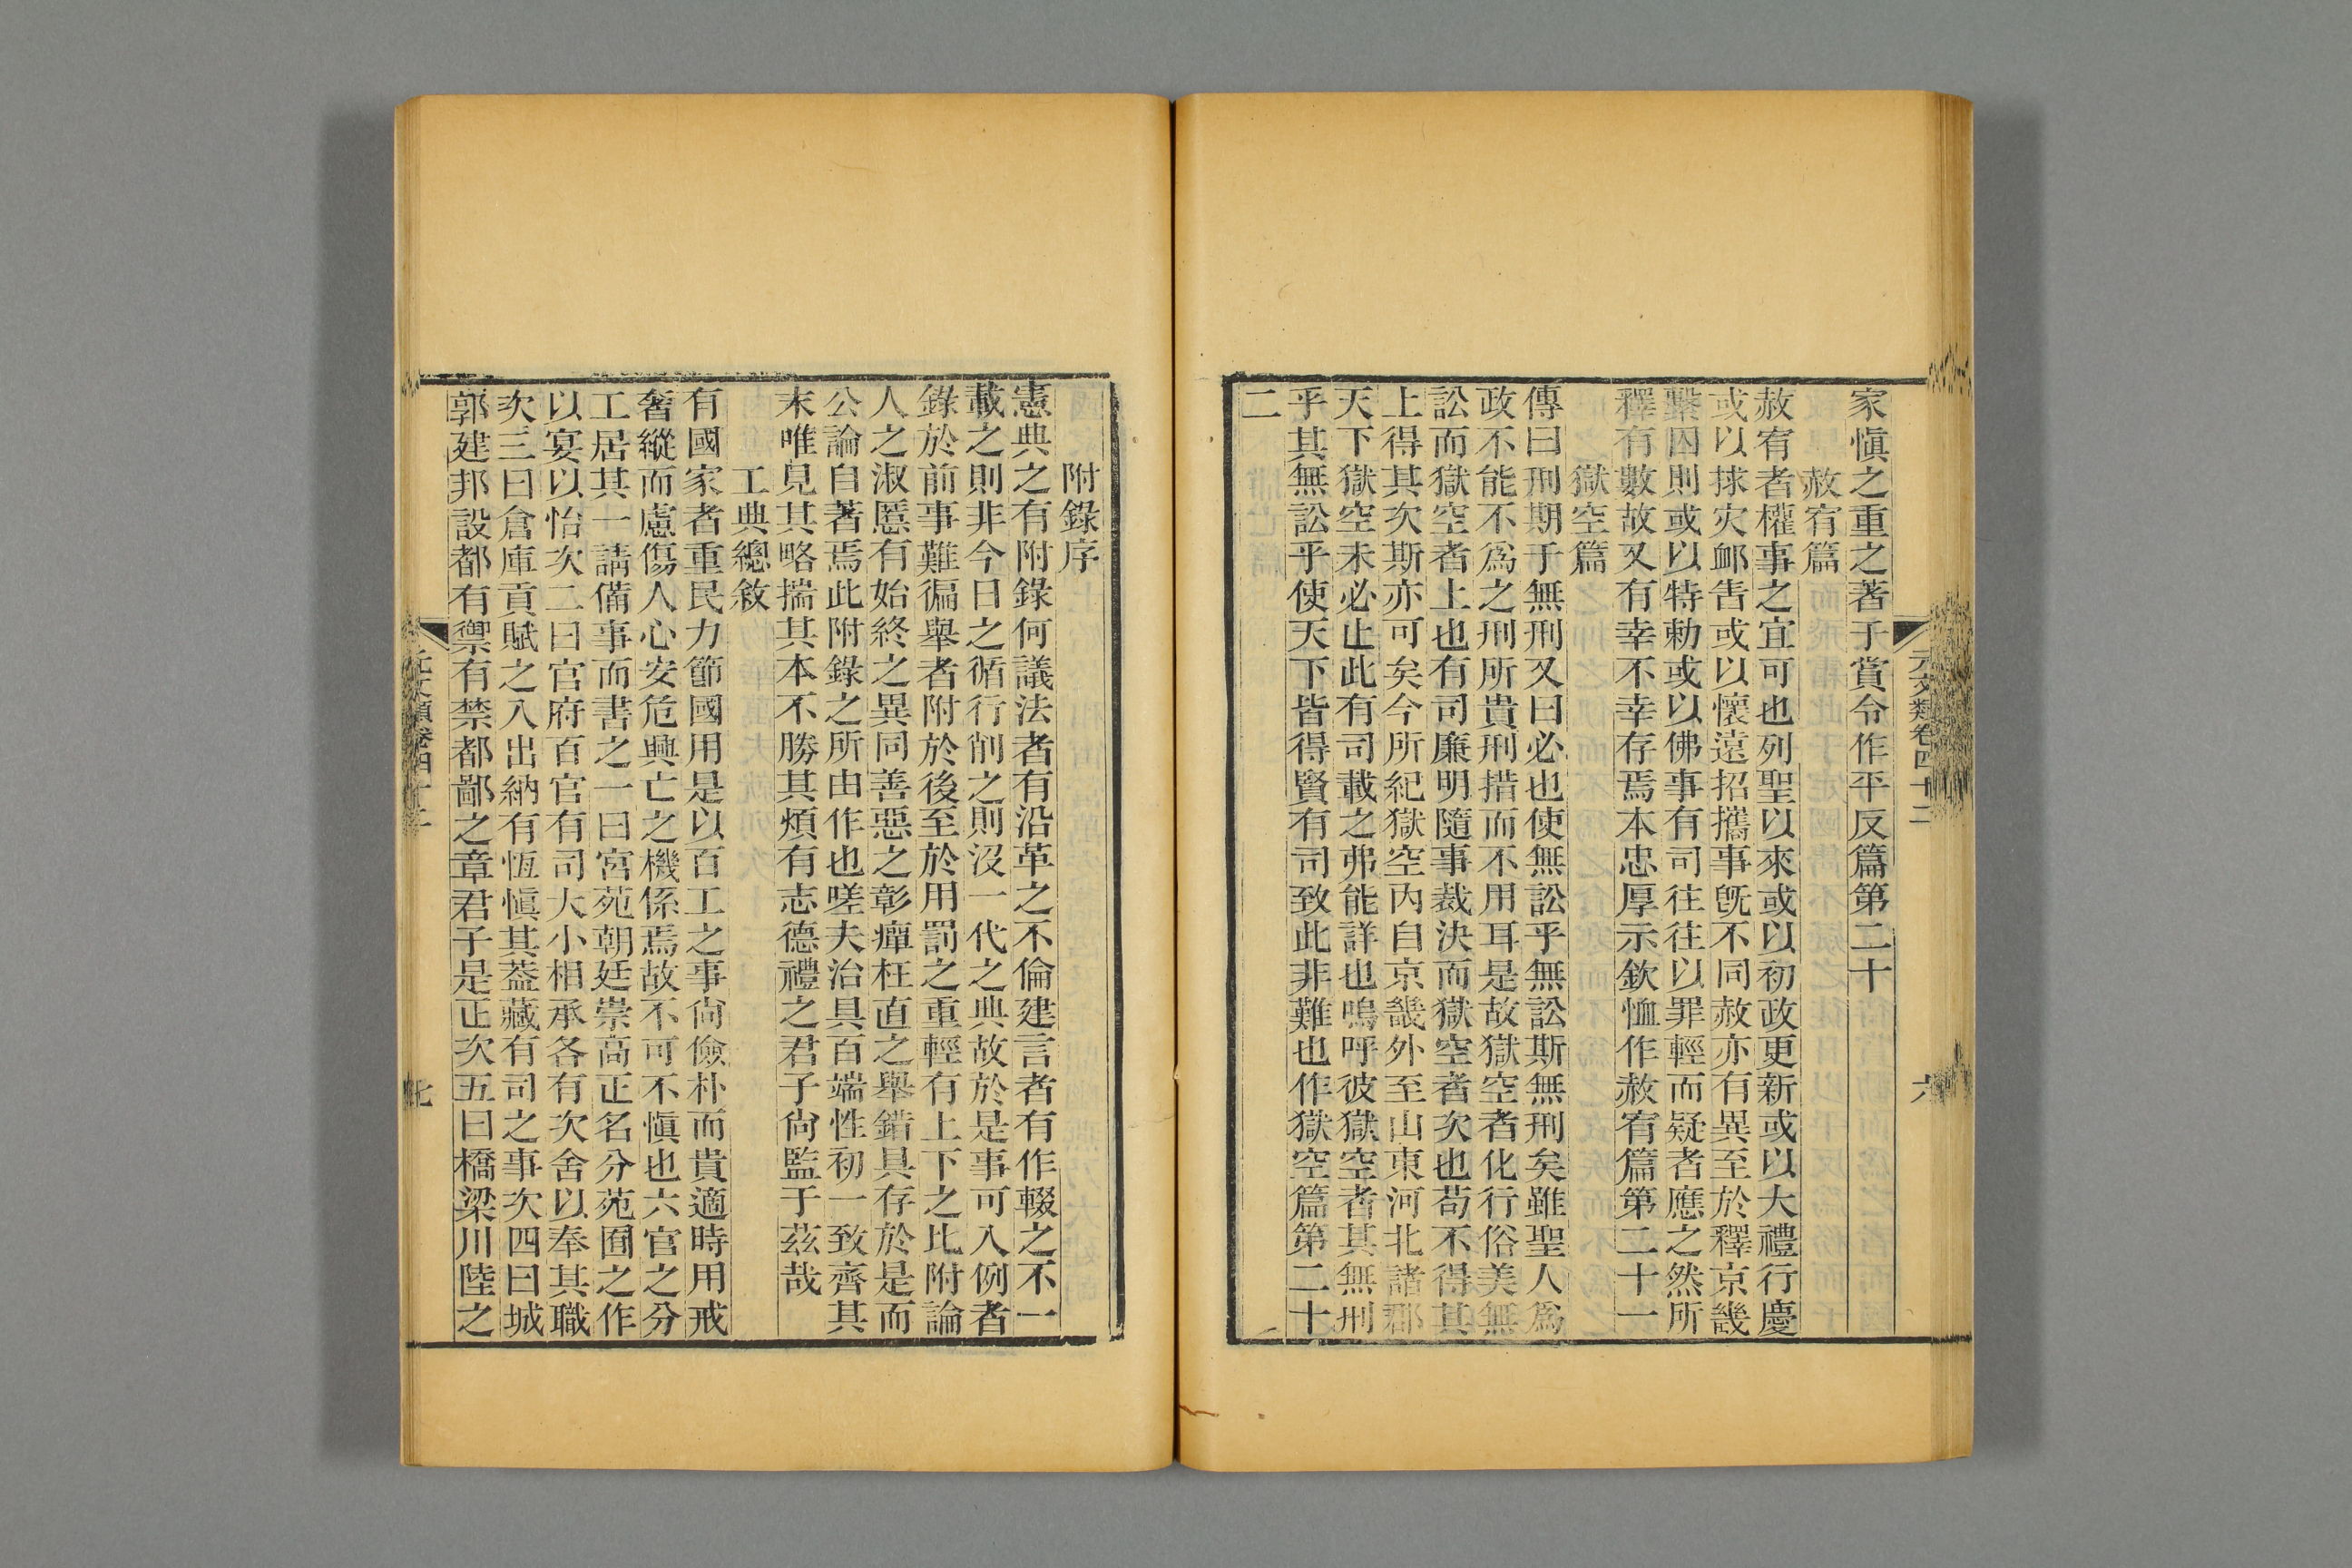 元文類卷四十二
六
家愼之重之著于賞令作平反篇第二十
赦宥篇
赦宥者權事之宜可也列聖以來或以初政更新或以大禮行慶
或以捄灾䘏眚或以懷遠招攜事旣不同赦亦有異至於釋京畿
繫囚則或以特勅或以佛事有司往往以罪輕而疑者應之然所
釋有數故又有幸不幸存焉本忠厚示欽恤作赦宥篇第二十一
獄空篇
傳曰刑期于無刑又曰必也使無訟乎無訟斯無刑矣雖聖人爲
政不能不爲之刑所貴刑措而不用耳是故獄空者化行俗美無
訟而獄空者上也有司廉明隨事裁決而獄空者次也苟不得其
上得其次斯亦可矣今所紀獄空內自京畿外至山東河北諸郡
天下獄空未必止此有司載之弗能詳也嗚呼彼獄空者其無刑
乎其無訟乎使天下皆得賢有司致此非難也作獄空篇第二十
二
附錄序
憲典之有附錄何議法者有沿革之不倫建言者有作輟之不一
載之則非今日之循行削之則沒一代之典故於是事可入例者
錄於前事難徧舉者附於後至於用罰之重輕有上下之比附論
人之淑慝有始終之異同善惡之彰癉枉直之舉錯具存於是而
公論自著焉此附錄之所由作也嗟夫治具百端性初一致齊其
末唯見其略揣其本不勝其煩有志德禮之君子尙監于茲哉
工典總敘
有國家者重民力節國用是以百工之事尙儉朴而貴適時用戒
奢縱而慮傷人心安危興亡之機係焉故不可不愼也六官之分
工居其一請備事而書之一曰宮苑朝廷崇高正名分苑囿之作
以宴以怡次二曰官府百官有司大小相承各有次舍以奉其職
次三曰倉庫貢賦之入出納有恆愼其葢藏有司之事次四曰城
郭建邦設都有禦有禁都鄙之章君子是正次五曰橋梁川陸之
元文類卷四十二
七